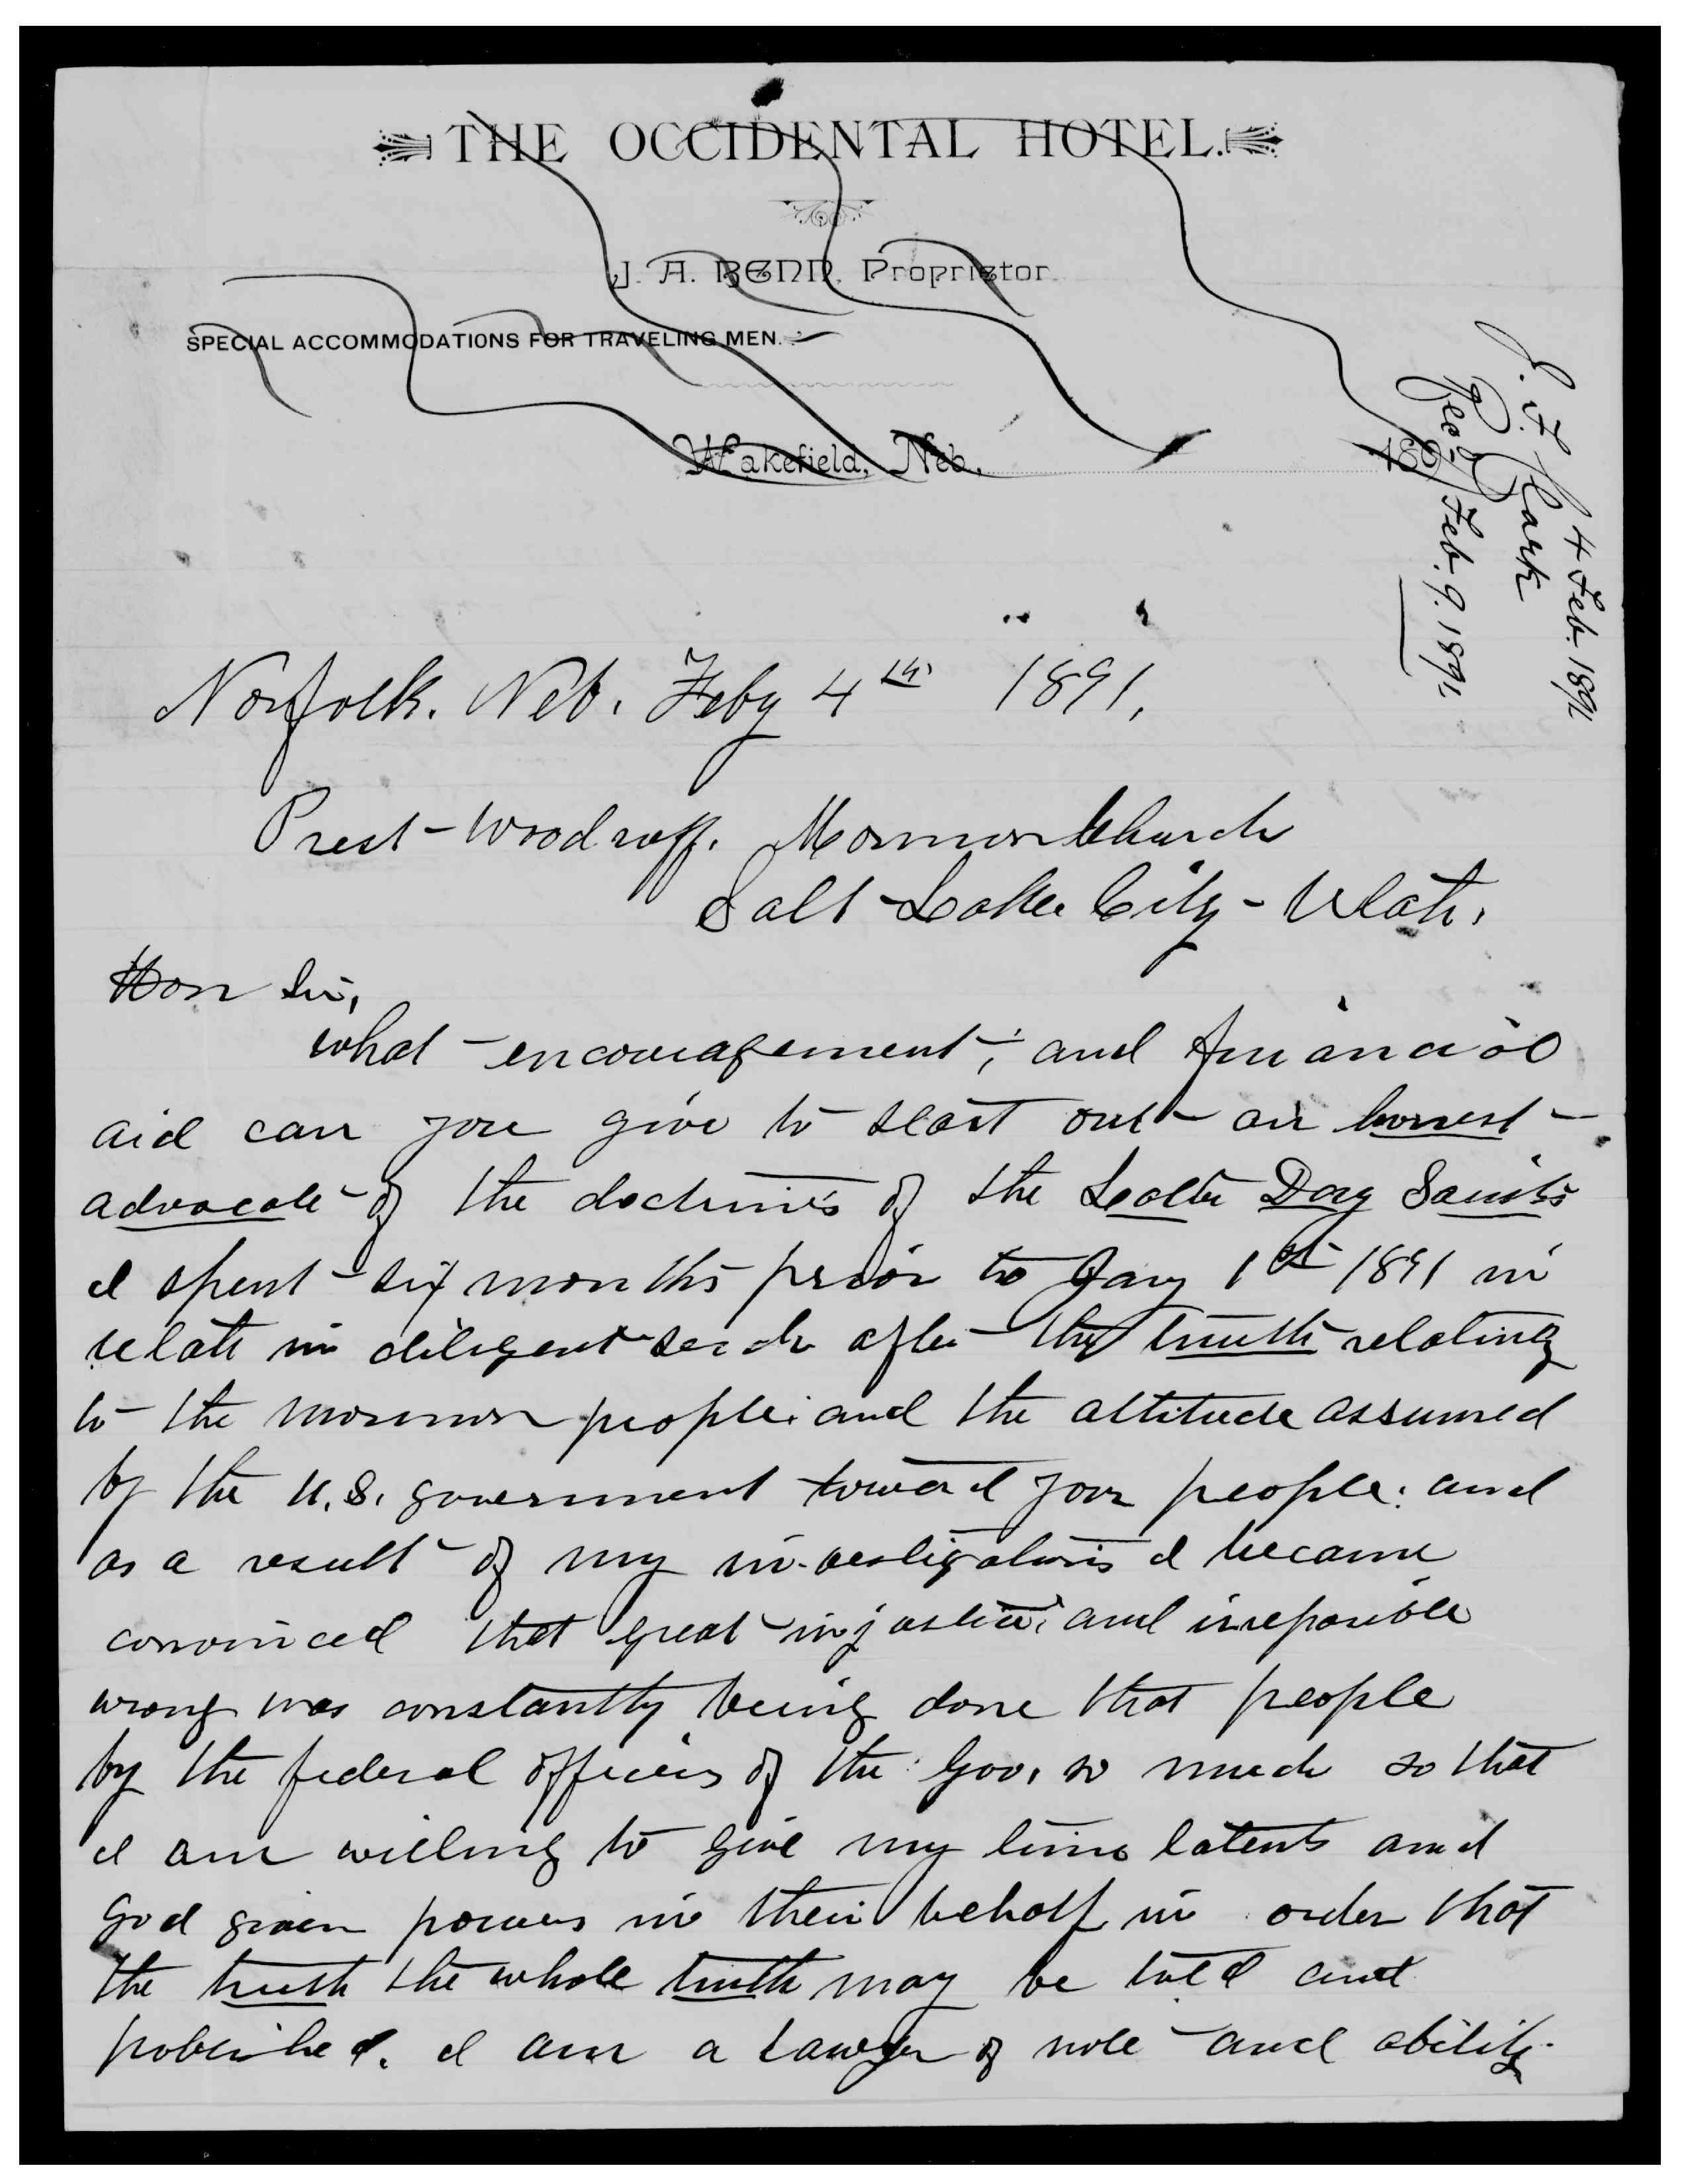 THE OCCIDENTAL HOTEL.
J. A. BENN, Proprietor.
SPECIAL ACCOMMODATIONS FOR TRAVELING MEN.
Wakefield, Neb. 189
J. F. Clark
4 Feb. 1891
Recd Feb. 9. 1891.
Norfolk. Neb. Feby 4th 1891,
Prest- Woodruff. Mormon Church
Salt-Lake City- Utah.
Hon Sir,
what encouragement, and financial
aid can you give to start out an honest
advocate of the doctrines of the Latter Day Saints
I spent six months prior to Jany 1st 1891 in
Utah in diligent serch after the truth relating
to the mormon people: and the attitude assumed
by the U.S. government toward your people: and
as a result of my investigations I became
convinced that great injustice: and irreparible
wrong was constantly being done that people
by the federal officers of the Gov. so much so that
I am willing to give my time latents and
God given powers in their behalf in order that
the truth the whole truth may be told and
published. I am a Lawyer of note and ability.